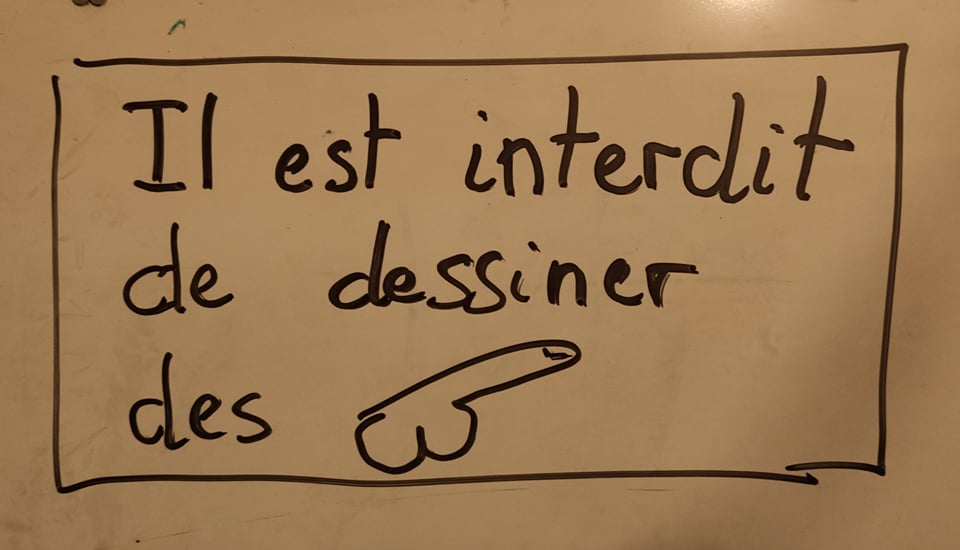 Il est interdit
de dessiner
des